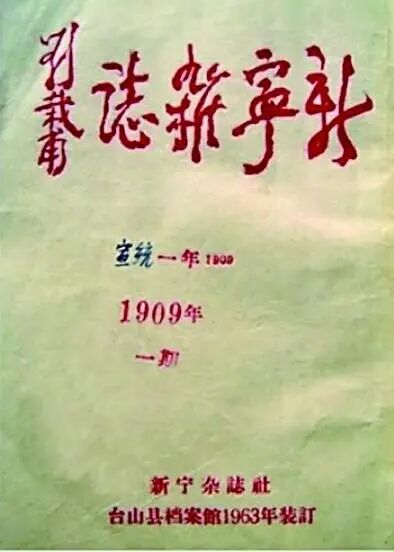 新寧雜誌
劉栽甫
宣統一年1909
1909年
一期
新宁杂誌社
台山县档案館1963年装訂